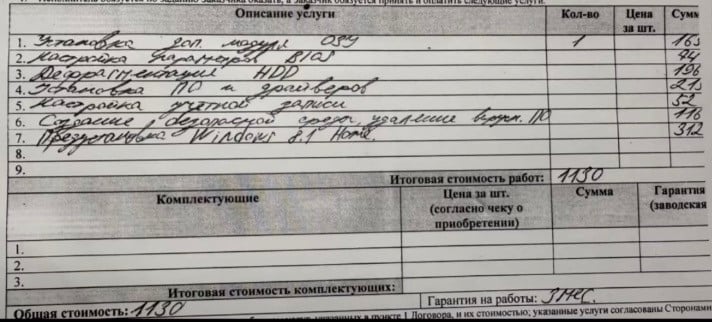 Исполнитель обязуется по заданию Заказчика оказать, а Заказчик обязуется принять и оплатить следующие услуги:
Описание услуги Кол-во Цена за шт. Сумм
1. Установка доп. модуля ОЗУ 1 165
2. Настройка параметров BIOS 74
3. Дефрагментация HDD 196
4. Установка ПО и драйверов 215
5. Настройка учетной записи 52
6. Создание безопасной среды, удаление вирусн. ПО 116
7. Предустановка Windows 8.1 Home. 312
8.
9.
Итоговая стоимость работ: 1130
Комплектующие Цена за шт. (согласно чеку о приобретении) Сумма Гарантия (заводская
1.
2.
3.
Итоговая стоимость комплектующих:
Общая стоимость: 1130 Гарантия на работы: 3 мес.
в пункте 1 Договора, и их стоимость; указанные услуги согласованы Сторонами